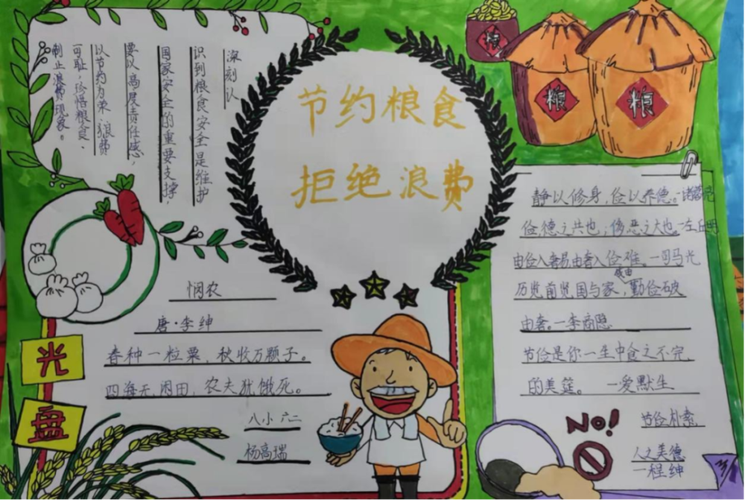 节约粮食
拒绝浪费
深刻认
识到粮食安全是维护
国家安全的重要支撑
要以高度责任感,
以节约为荣、浪费
可耻,珍惜粮食,
制止浪费现象。
粮
粮
光
盘
悯农
唐·李绅
春种一粒粟,秋收万颗子。
四海无闲田,农夫犹饿死。
八小 六二
静以修身,俭以养德。
俭,德之共也;侈,恶之大也。
由俭入奢易,由奢入俭难。—司马光
历览前览国与家,成由勤俭破
由奢。—李商隐
节俭是你一生中食之不完
的美筵。 —爱默生
NO!
节俭朴素,
人之美德